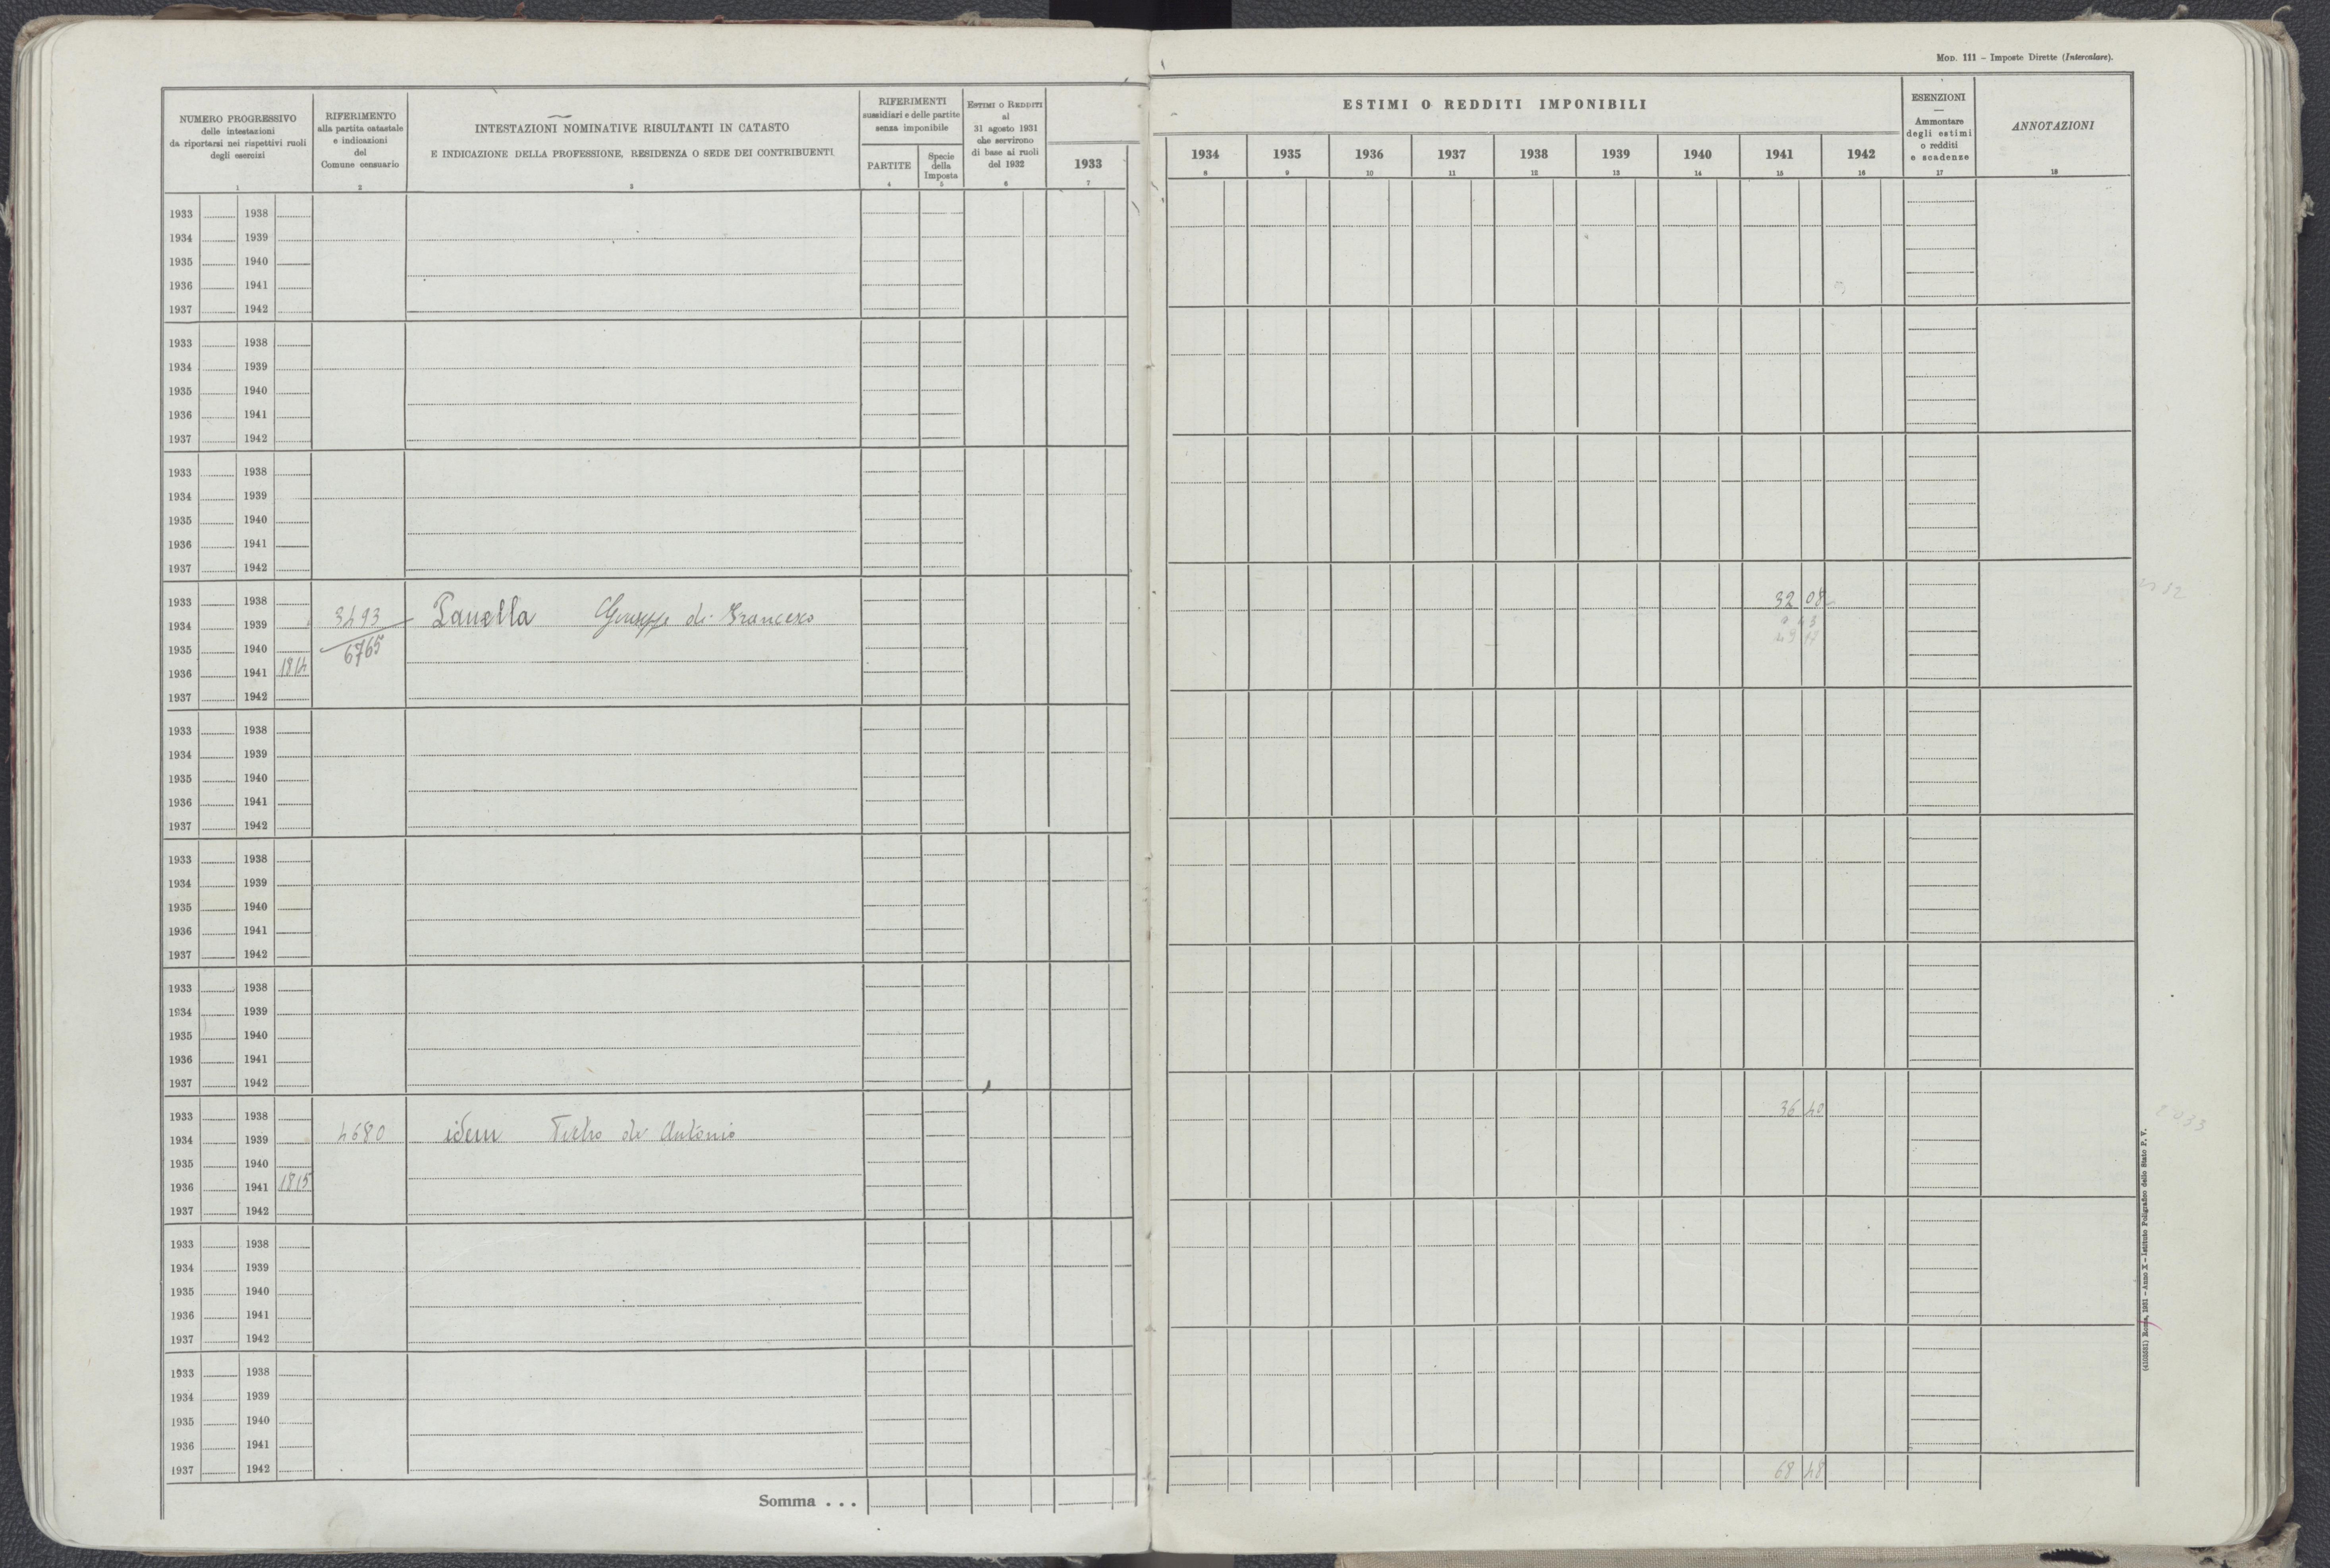 MOD. 111 – Imposte Dirette (Intercalare).
NUMERO PROGRESSIVO
delle intestazioni
da riportarsi nei rispettivi ruoli
degli esercizi
1
RIFERIMENTO
alla partita catastale
e indicazioni
del
Comune censuario
2
INTESTAZIONI NOMINATIVE RISULTANTI IN CATASTO
E INDICAZIONE DELLA PROFESSIONE, RESIDENZA O SEDE DEI CONTRIBUENTI
3
RIFERIMENTI
sussidiari e delle partite
senza imponibile
PARTITE
4
Specie
della
Imposta
5
ESTIMI O REDDITI
al
31 agosto 1931
che servirono
di base ai ruoli
del 1932
6
ESTIMI O REDDITI IMPONIBILI
1933 1934 1935 1936 1937 1938 1939 1940 1941 1942
7 8 9 10 11 12 13 14 15 16
ESENZIONI
—
Ammontare
degli estimi
o redditi
e scadenze
17
ANNOTAZIONI
18
1933 1938
1934 1939
1935 1940
1936 1941
1937 1942
1933 1938
1934 1939
1935 1940
1936 1941
1937 1942
1933 1938
1934 1939
1935 1940
1936 1941
1937 1942
1933 1938 32 08
1934 1939 3493 Panella Giuseppe di Francesco
1935 1940 6765
1936 1941 1814
1937 1942
1933 1938
1934 1939
1935 1940
1936 1941
1937 1942
1933 1938
1934 1939
1935 1940
1936 1941
1937 1942
1933 1938
1934 1939
1935 1940
1936 1941
1937 1942
1933 1938 36 40
1934 1939 4680 idem Pietro di Antonio
1935 1940
1936 1941 1815
1937 1942
1933 1938
1934 1939
1935 1940
1936 1941
1937 1942
1933 1938
1934 1939
1935 1940
1936 1941
1937 1942
Somma . . . 68 48
(4105581) Roma, 1931 – Anno X – Istituto Poligrafico dello Stato P. V.